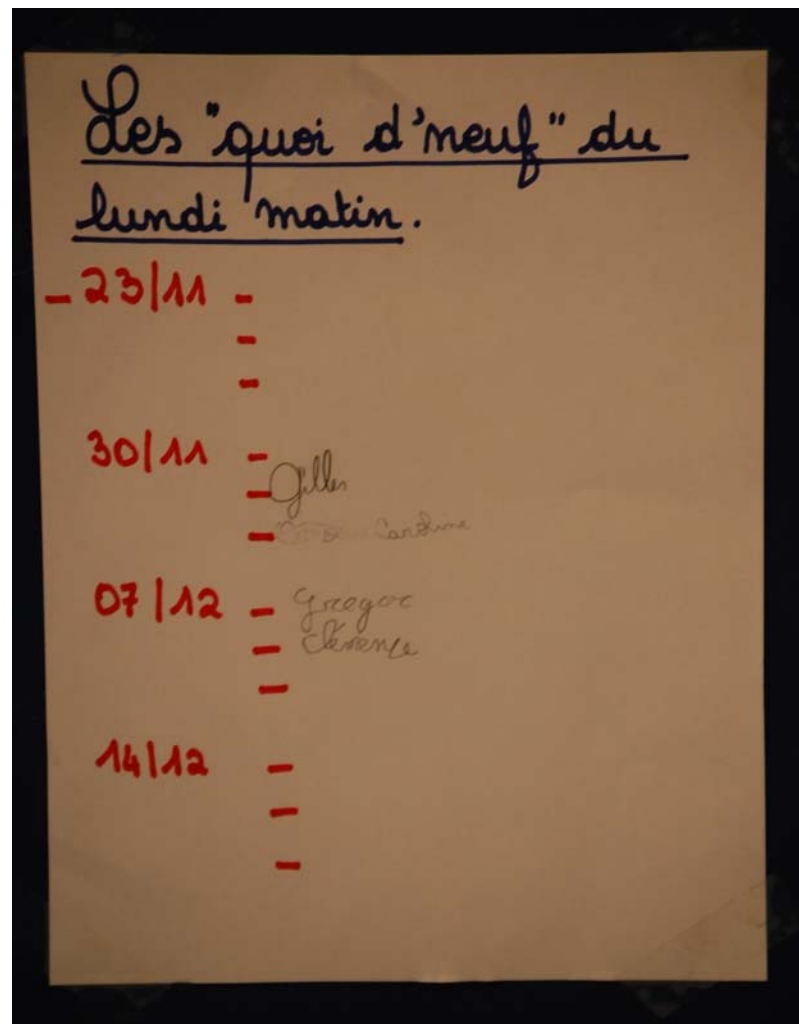 Les "quoi d'neuf" du
lundi matin.
- 23/11 -
-
-
30/11 -
- Gilles
- Caroline
07/12 - Gregor
- Clémence
-
14/12 -
-
-